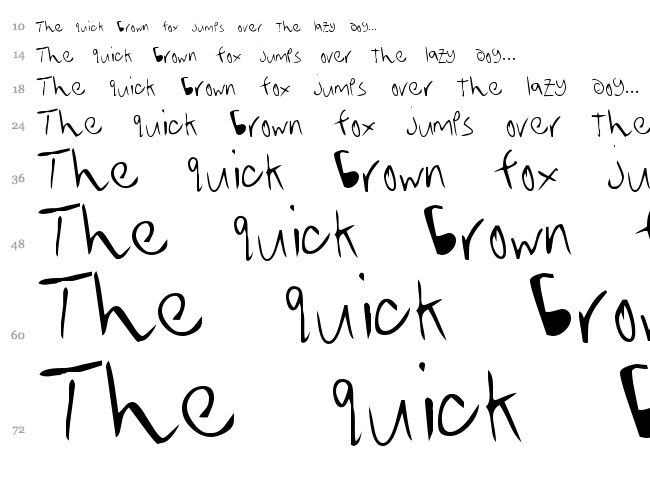 10 The quick brown fox jumps over the lazy dog...
14 The quick brown fox jumps over the lazy dog...
18 The quick brown fox jumps over the lazy dog...
24 The quick brown fox jumps over the
36 The quick brown fox ju
48 The quick brown
60 The quick brow
72 The quick